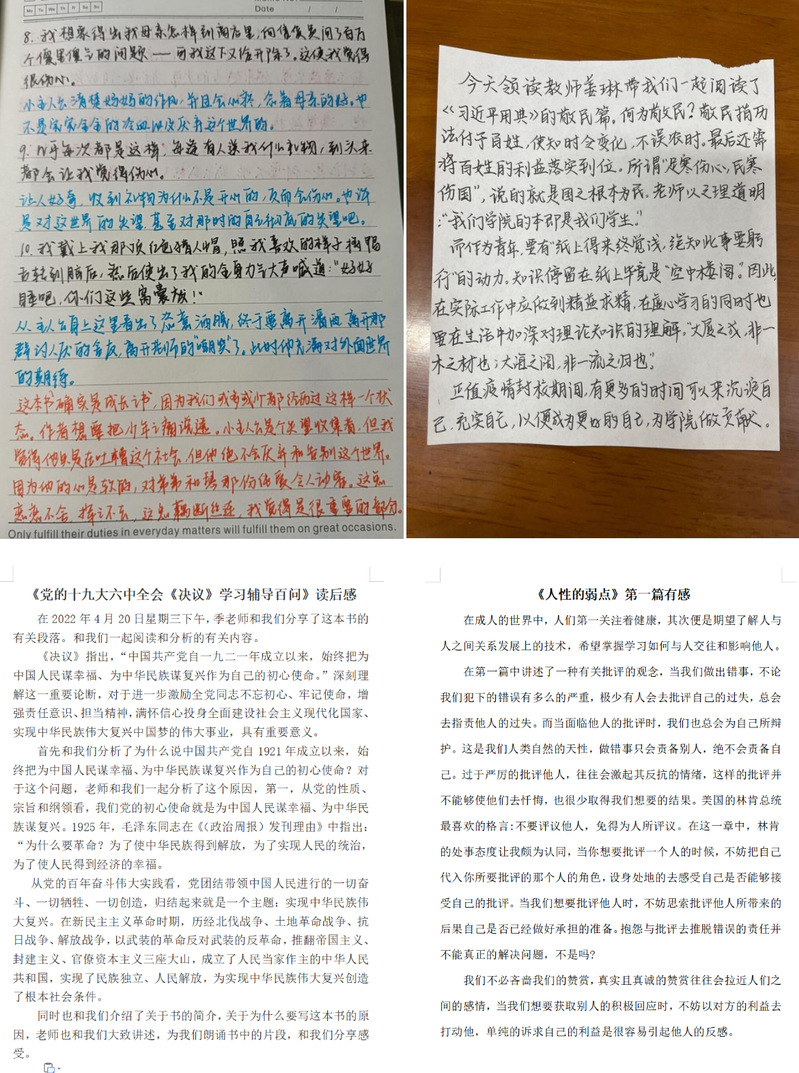 Mo Tu We Th Fr Sa Su
Date / /
8. 我想象得出我母亲怎样到商店里,向售货员问了百万
个傻里傻气的问题——可我这下又给开除了。这使我觉得
很伤心。
不是完完全全的冷血
9. 几乎每次都是这样,每逢有人送我什么礼物,到头来
都会让我觉得伤心。
让人好奇,收到礼物为什么不是开心的,反而会伤心。也许
是对这世界的失望,甚至对那时的自己彻底的失望吧。
10. 我戴上我那顶红色猎人帽,照我喜欢的样子将鸭
舌转到脑后,然后使出了我的全身力气大声喊道:“好好
睡吧,你们这些窝囊废!”
群讨人厌的室友,离开老师的“明枪”了。此时他充满对外面世界
的期待。
这本书确实是成长之书,因为我们或多或少都经历过这样一个状
态。作者想要把少年之情说透。小主人公是个失望收集者,但我
觉得他只是在吐槽这个社会,但他绝不会反弃和告别这个世界。
因为他的心是软的,对弟弟和妹那份伤感令人动容。这是
恋恋不舍,挥之不去,这是藕断丝连,我觉得是很重要的部分。
Only fulfill their duties in everyday matters will fulfill them on great occasions.
今天领读教师姜琳带我们一起阅读了
《习近平用典》的敬民篇。何为敬民?敬民指历
法付于百姓,使知时令变化,不误农时,最后还需
将百姓的利益落实到位。所谓“及寒伤心,民寒
伤国”,说的就是国之根本为民。老师以之理道明
:“我们学院的本即是我们学生。”
而作为青年,要有“纸上得来终觉浅,绝知此事要躬
行”的动力。知识停留在纸上毕竟是“空中楼阁”。因此,
在实际工作中应做到精益求精,在虚心学习的同时也
要在生活中加深对理论知识的理解,“大厦之成,非一
木之材也;大海之阔,非一流之归也”。
正值疫情封校期间,有更多的时间可以来沉淀自
己,充实自己,以便成为更好的自己,为学院做贡献。
《党的十九大六中全会《决议》学习辅导百问》读后感
在 2022 年 4 月 20 日星期三下午,季老师和我们分享了这本书的
有关段落。和我们一起阅读和分析的有关内容。
《决议》指出,“中国共产党自一九二一年成立以来,始终把为
中国人民谋幸福、为中华民族谋复兴作为自己的初心使命。”深刻理
解这一重要论断,对于进一步激励全党同志不忘初心、牢记使命,增
强责任意识、担当精神,满怀信心投身全面建设社会主义现代化国家、
实现中华民族伟大复兴中国梦的伟大事业,具有重要意义。
首先和我们分析了为什么说中国共产党自 1921 年成立以来,始
终把为中国人民谋幸福、为中华民族谋复兴作为自己的初心使命?对
于这个问题,老师和我们一起分析了这个原因,第一,从党的性质、
宗旨和纲领看,我们党的初心使命就是为中国人民谋幸福、为中华民
族谋复兴。1925 年,毛泽东同志在《〈政治周报〉发刊理由》中指出:
“为什么要革命?为了使中华民族得到解放,为了实现人民的统治,
为了使人民得到经济的幸福。
从党的百年奋斗伟大实践看,党团结带领中国人民进行的一切奋
斗、一切牺牲、一切创造,归结起来就是一个主题:实现中华民族伟
大复兴。在新民主主义革命时期,历经北伐战争、土地革命战争、抗
日战争、解放战争,以武装的革命反对武装的反革命,推翻帝国主义、
封建主义、官僚资本主义三座大山,成立了人民当家作主的中华人民
共和国,实现了民族独立、人民解放,为实现中华民族伟大复兴创造
了根本社会条件。
同时也和我们介绍了关于书的简介,关于为什么要写这本书的原
因,老师也和我们大致讲述,为我们朗诵书中的片段,和我们分享感
受。
《人性的弱点》第一篇有感
在成人的世界中,人们第一关注着健康,其次便是期望了解人与
人之间关系发展上的技术,希望掌握学习如何与人交往和影响他人。
在第一篇中讲述了一种有关批评的观念,当我们做出错事,不论
我们犯下的错误有多么的严重,极少有人会去批评自己的过失,总会
去指责他人的过失。而当面临他人的批评时,我们也总会为自己所辩
护。这是我们人类自然的天性,做错事只会责备别人,绝不会责备自
己。过于严厉的批评他人,往往会激起其反抗的情绪,这样的批评并
不能够使他们去忏悔,也很少取得我们想要的结果。美国的林肯总统
最喜欢的格言:不要评议他人,免得为人所评议。在这一章中,林肯
的处事态度让我颇为认同,当你想要批评一个人的时候,不妨把自己
代入你所要批评的那个人的角色,设身处地的去感受自己是否能够接
受自己的批评。当我们想要批评他人时,不妨思索批评他人所带来的
后果自己是否已经做好承担的准备。抱怨与批评去推脱错误的责任并
不能真正的解决问题,不是吗?
我们不必吝啬我们的赞赏,真实且真诚的赞赏往往会拉近人们之
间的感情,当我们想要获取别人的积极回应时,不妨以对方的利益去
打动他,单纯的诉求自己的利益是很容易引起他人的反感。